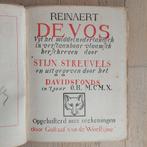 REINAERT
DE VOS
Uyt het middelnederlandsch
in verstaanbaar vlaemsch
herschreven door
STIJN STREUVELS
en uitgegeven door het
DAVIDSFONDS
in 't jaer O.H. M.C.M.X.
Opgeluisterd met teekeningen
door Gustaaf van de Woestijne